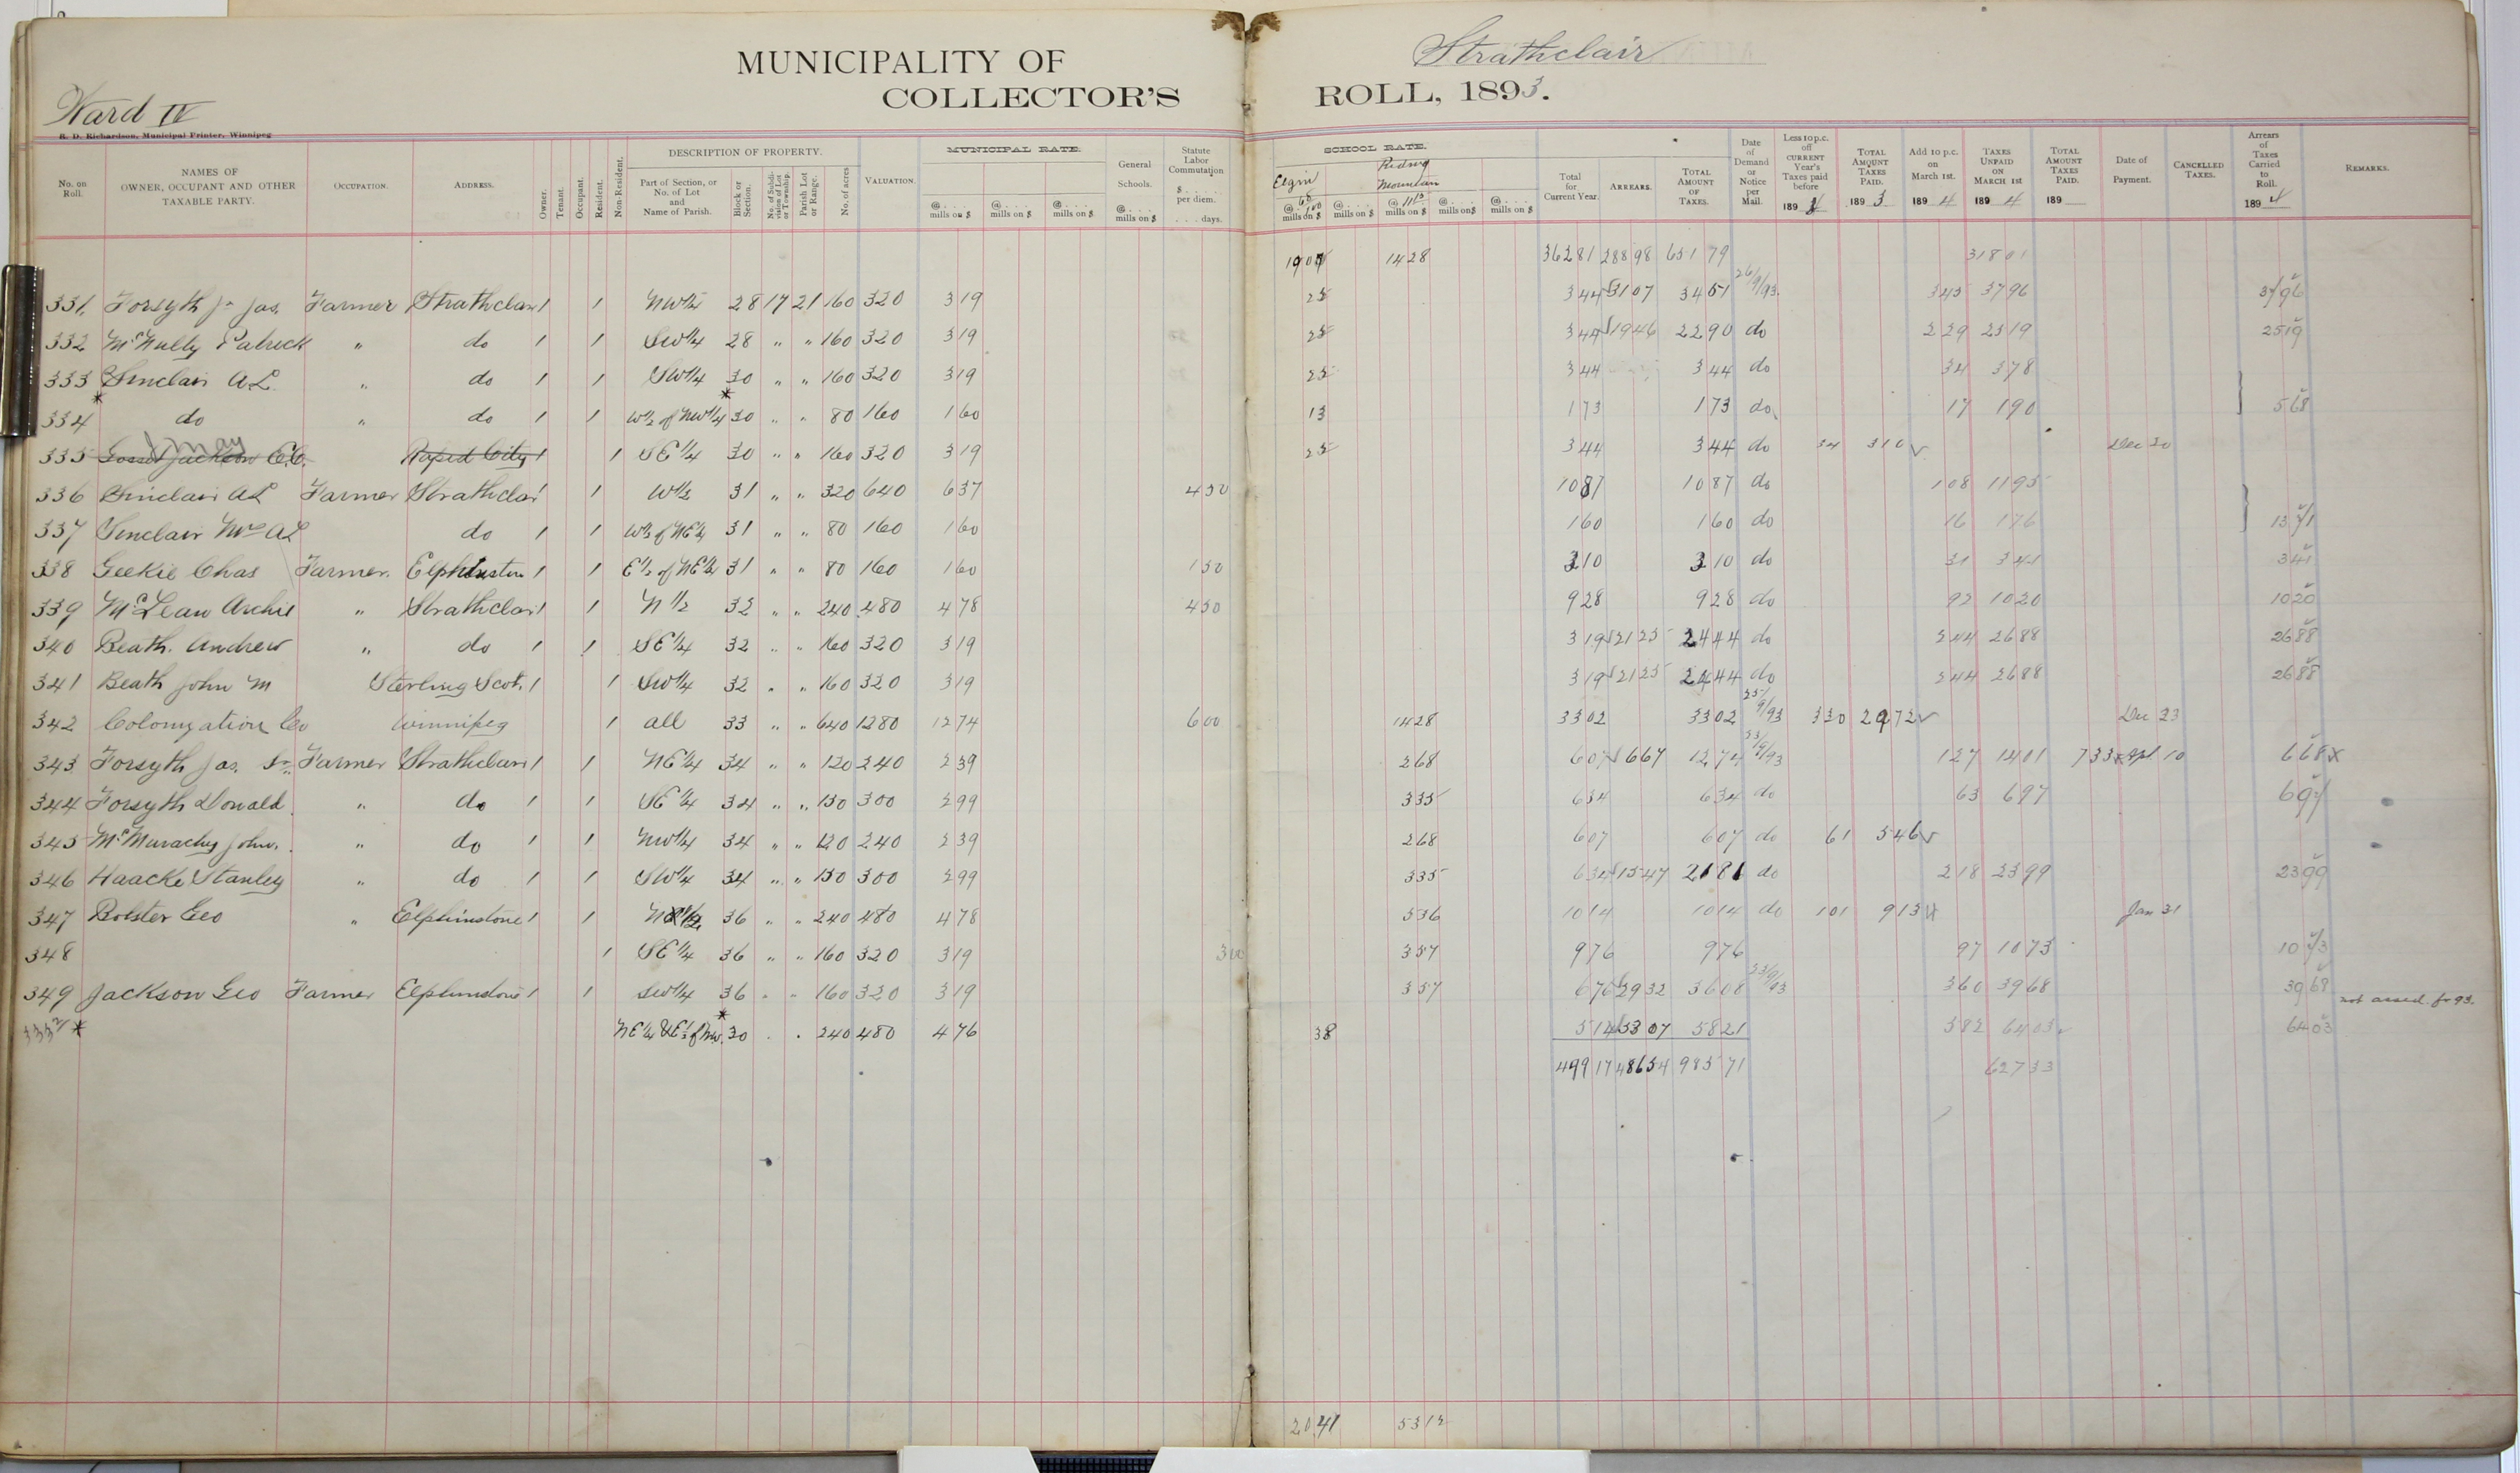 MUNICIPALITY OF Strathclair
COLLECTOR'S ROLL, 1893.
Ward IV
R. D. Richardson, Municipal Printer, Winnipeg
No. on Roll. NAMES OF OWNER, OCCUPANT AND OTHER TAXABLE PARTY. OCCUPATION. ADDRESS. Owner. Tenant. Occupant. Resident. Non-Resident. DESCRIPTION OF PROPERTY. Part of Section, or No. of Lot and Name of Parish. Block or Section. No. of Subdivision of Lot or Township. Parish Lot or Range. No. of acres VALUATION. MUNICIPAL RATE. @ .... mills on $ @ .... mills on $ @ .... mills on $ General Schools. @ .... mills on $ Statute Labor Commutation $ .... per diem. .... days. SCHOOL RATE. Elgin mills on $ @ .... mills on $ Riding Mountain mills on $ @ .... mills on $ @ .... mills on $ Total for Current Year. ARREARS. TOTAL AMOUNT OF TAXES. Date of Demand or Notice per Mail. Less 10 p.c. off CURRENT Year's Taxes paid before 189 4 TOTAL AMOUNT TAXES PAID. 189 3 Add 10 p.c. on March 1st. 189 4 TAXES UNPAID ON MARCH 1ST 189 4 TOTAL AMOUNT TAXES PAID. 189 Date of Payment. CANCELLED TAXES. Arrears of Taxes Carried to Roll. 189 4 REMARKS.
1428 36281 28898 65179 31801
331. Forsyth Jr Jas. Farmer Strathclair 1 1 NW 1/4 28 17 21 160 320 319 25 344 3107 3451 26/9/93. 345 3796 3796
332 McNulty Patrick " do 1 1 SW 1/4 28 " " 160 320 319 25 344 1946 2290 do 229 2519 2519
333 Sinclair A L " do 1 1 SW 1/4 30 " " 160 320 319 25 344 344 do 34 378
334 * do " do 1 1 W 1/2 of NW 1/4 * 30 " " 80 160 160 13 173 173 do 17 190 568
335 Jackson C.C. Rapid City 1 1 SE 1/4 30 " " 160 320 319 25 344 344 do 34 310 Dec 20
336 Sinclair A L Farmer Strathclair 1 W 1/2 31 " " 320 640 637 450 1087 1087 do 108 1195
337 Sinclair Mrs A L do 1 1 W 1/2 of NE 1/4 31 " " 80 160 160 160 160 do 16 176 1371
338 Geekie Chas Farmer. Elphinstone 1 1 E 1/2 of NE 1/4 31 " " 80 160 160 150 310 310 do 31 341 341
339 McLean Archie " Strathclair 1 1 N 1/2 32 " " 240 480 478 450 928 928 do 92 1020 1020
340 Beath. Andrew " do 1 1 SE 1/4 32 " " 160 320 319 319 2125 2444 do 244 2688 2688
341 Beath John M Sterling Scot. 1 1 SW 1/4 32 " " 160 320 319 319 2125 2444 do 244 2688 2688
342 Colonization Co Winnipeg 1 all 33 " " 640 1280 1274 600 1428 3302 3302 25/9/93 330 2972 Dec 23
343 Forsyth Jas. Sr. Farmer Strathclair 1 1 NE 1/4 34 " " 120 240 239 268 607 667 1274 23/9/93 127 1401 733 Apl 10 668 x
344 Forsyth Donald " do 1 1 SE 1/4 34 " " 150 300 299 335 634 634 do 63 697 697
345 McMurachy John. " do 1 1 NW 1/4 34 " " 120 240 239 268 607 607 do 61 546
346 Haacke Stanley " do 1 1 SW 1/4 34 " " 150 300 299 335 634 1547 2181 do 218 2399 2399
347 Bolster Geo " Elphinstone 1 1 N 1/2 36 " " 240 480 478 536 1014 1014 do 101 913 Jan 31
348 1 SE 1/4 36 " " 160 320 319 300 357 976 976 97 1073 1073
349 Jackson Geo Farmer Elphinstone 1 1 SW 1/4 36 " " 160 320 319 357 676 2932 3608 23/9/93 360 3968 3968 not assed. for 93.
* NE 1/4 & E 1/2 of NW. * 30 " " 240 480 476 38 514 5307 5821 582 6403 6403
49917 48654 98571 62733
2041 5312